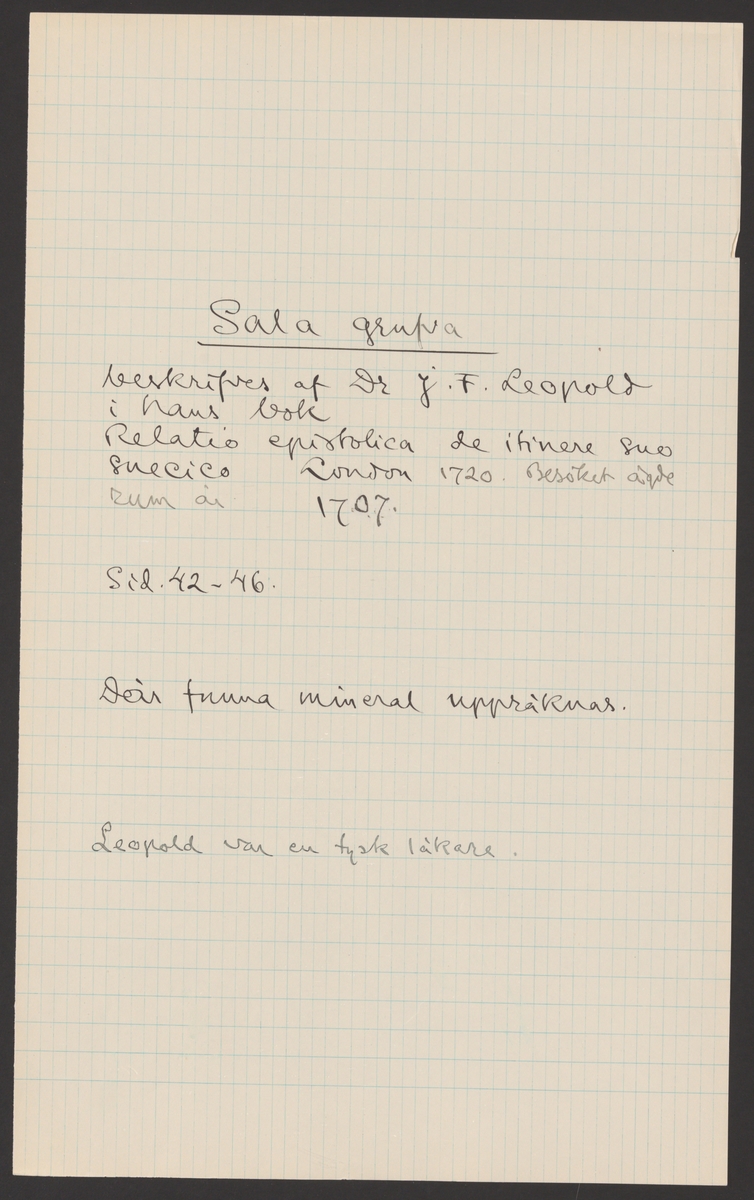 Sala grufva
beskrifves af Dr J. F. Leopold
i hans bok
Relatio epistolica de itinere suo
suecico London 1720. Besöket ägde
rum år 1707.
Sid. 42-46.
Där funna mineral uppräknas.
Leopold var en tysk läkare.